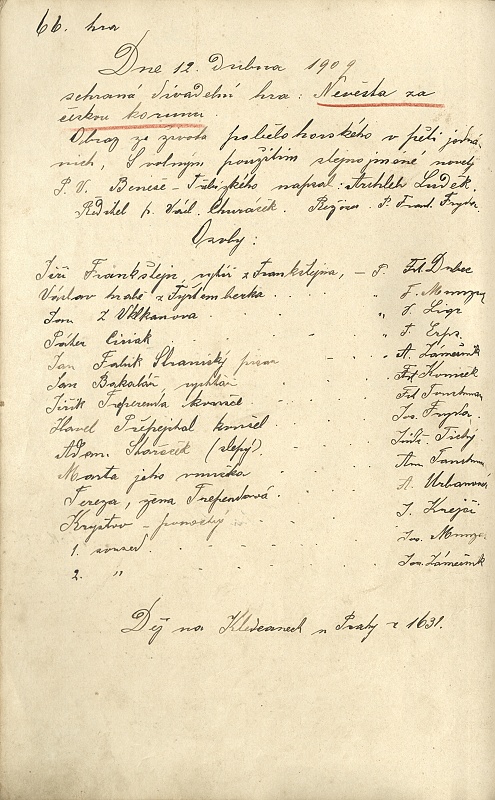 66. hra
Dne 12. dubna 1909
sehraná divadelní hra: Nevěsta za
českou korunu.
Obraz ze života pobělohorského v pěti jedná
ních, S volným použitím stejnojmené novely
P. V. Beneše-Třebízského napsal: Archleb Luděk.
Ředitel p. Václ. Churáček. Režisér P. Frant. Fryda.
Osoby:
Jiří Frankštejn, rytíř z Frankštejna, - P. Frt. Drbec
Václav hrabě z Tyštemberka . . . " F.
Jan z Vlkanova . . . " J. Ligr
Páter Ciriak . . . " F. Erps.
Jan Fabik Stranický písar . . A. Zámečník
Jan Bakalář rychtář . . . Frt.
Jiřík Třeperenda kovář . . . Frt.
Havel Přepejchal kostel . . . Jos. Fryda.
Adam Staroček (slepý) . . . Jindř. Tichý
Marta jeho vnučka . . . Ann
Tereza, žena Třeperendová . . . A. Urbanová
Kryštov - ponocný . . . J. Krejčí
1. soused . . . Jos.
2. " . . . Jos. Zámečník
Děj na Klecanech u Prahy r 1631.